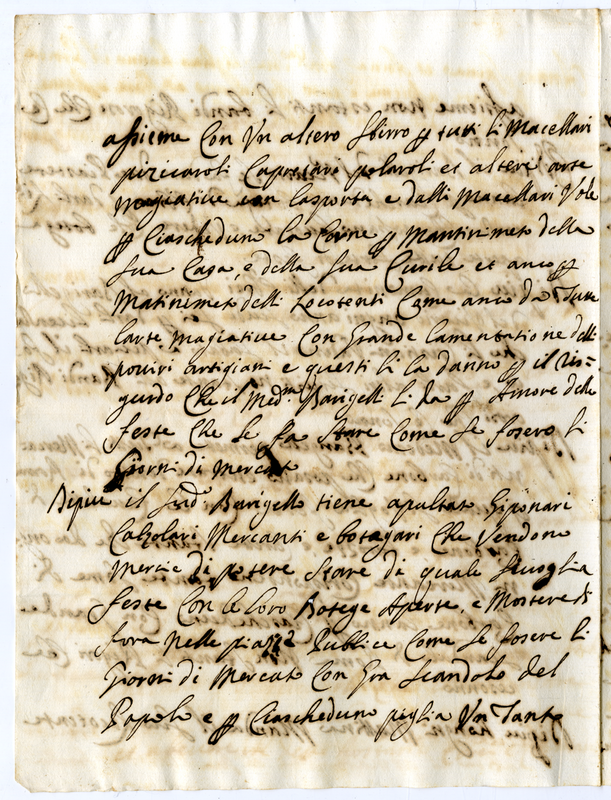 assieme Con Vn altero Sbirro p tutti li Macellari
pizicaroli Caprettari polaroli et altere arte
magiative con lasporta e dalli Macellari Vole
p Ciascheduno la Carne p Mantinimeto della
sua Casa, e della sua Curile et anco p
Matinimeto delli Locotenti Come anco da Tutte
larte magiative Con Grande lamentatione delli
poviri artigiani e questi li la danno p il ris=
gurdo Che il Medmo Barigello li da p Amore delle
feste Che le fa stare Come se fosero li
Giorni di Mercato
Dipiu il Sud Barigello tiene apultato Giponari
Calzolari Mercanti e botegari Che Vendono
Mercie di potere stare di quale sivoglia
feste Con le loro Botege Aperte, e Mostere di
fora nelle piazze Publice Come se fosere li
Giorni di Mercato Con Gra scandolo del
Popolo e p Ciascheduno piglia Vn Tanto